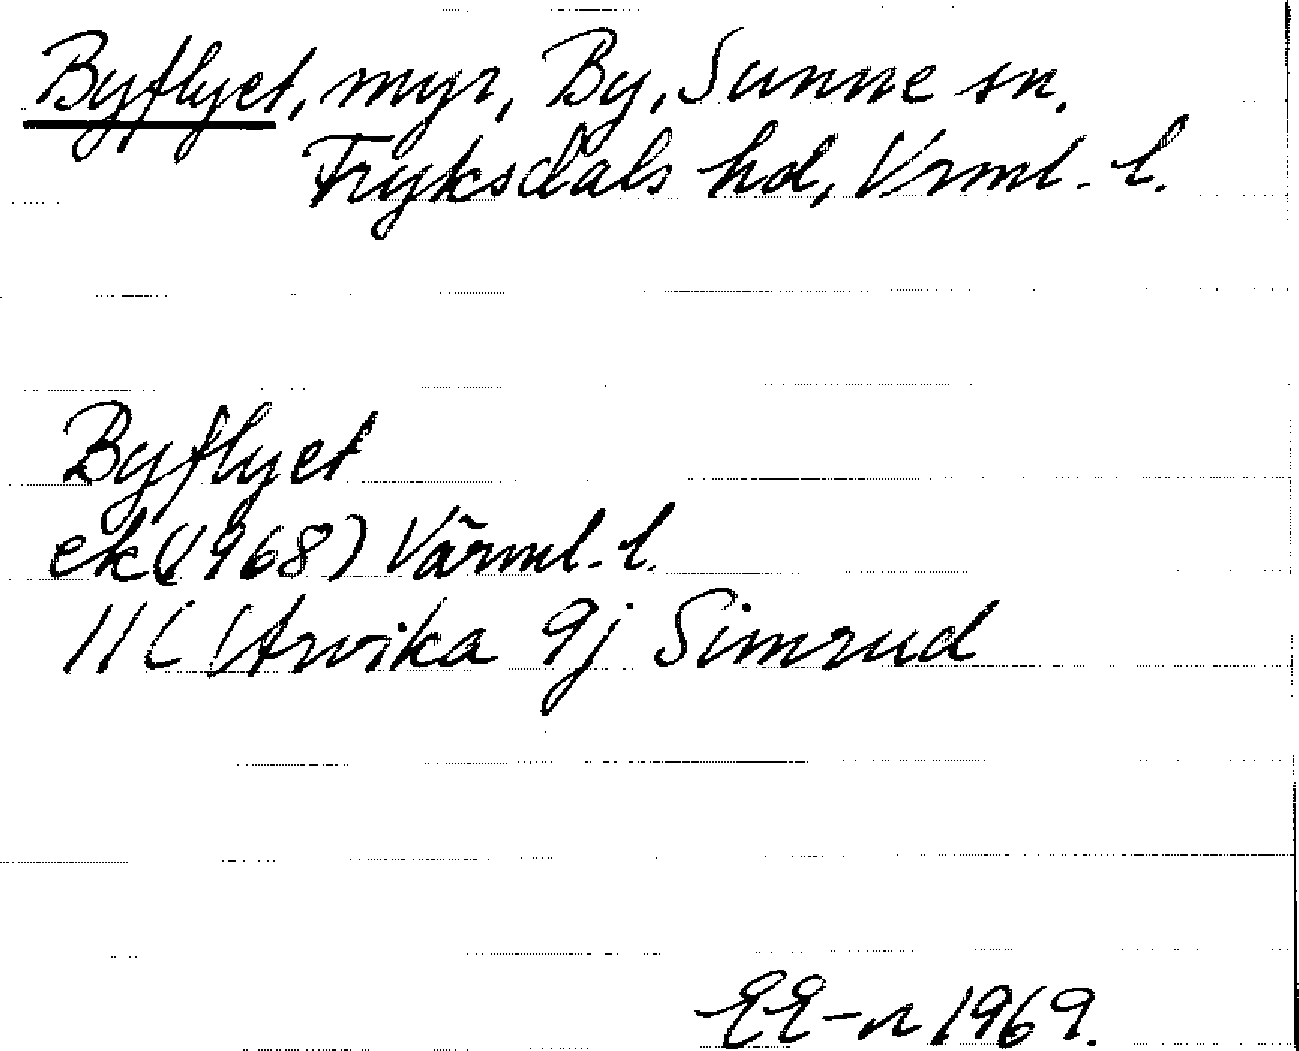 Byflyet, myr, By, Sunne sn.
Fryksdals hd, Vrml. l.
Byflyet
ek (1968) Värml. l.
11C Arvika 9j Simrud
EE-n 1969.